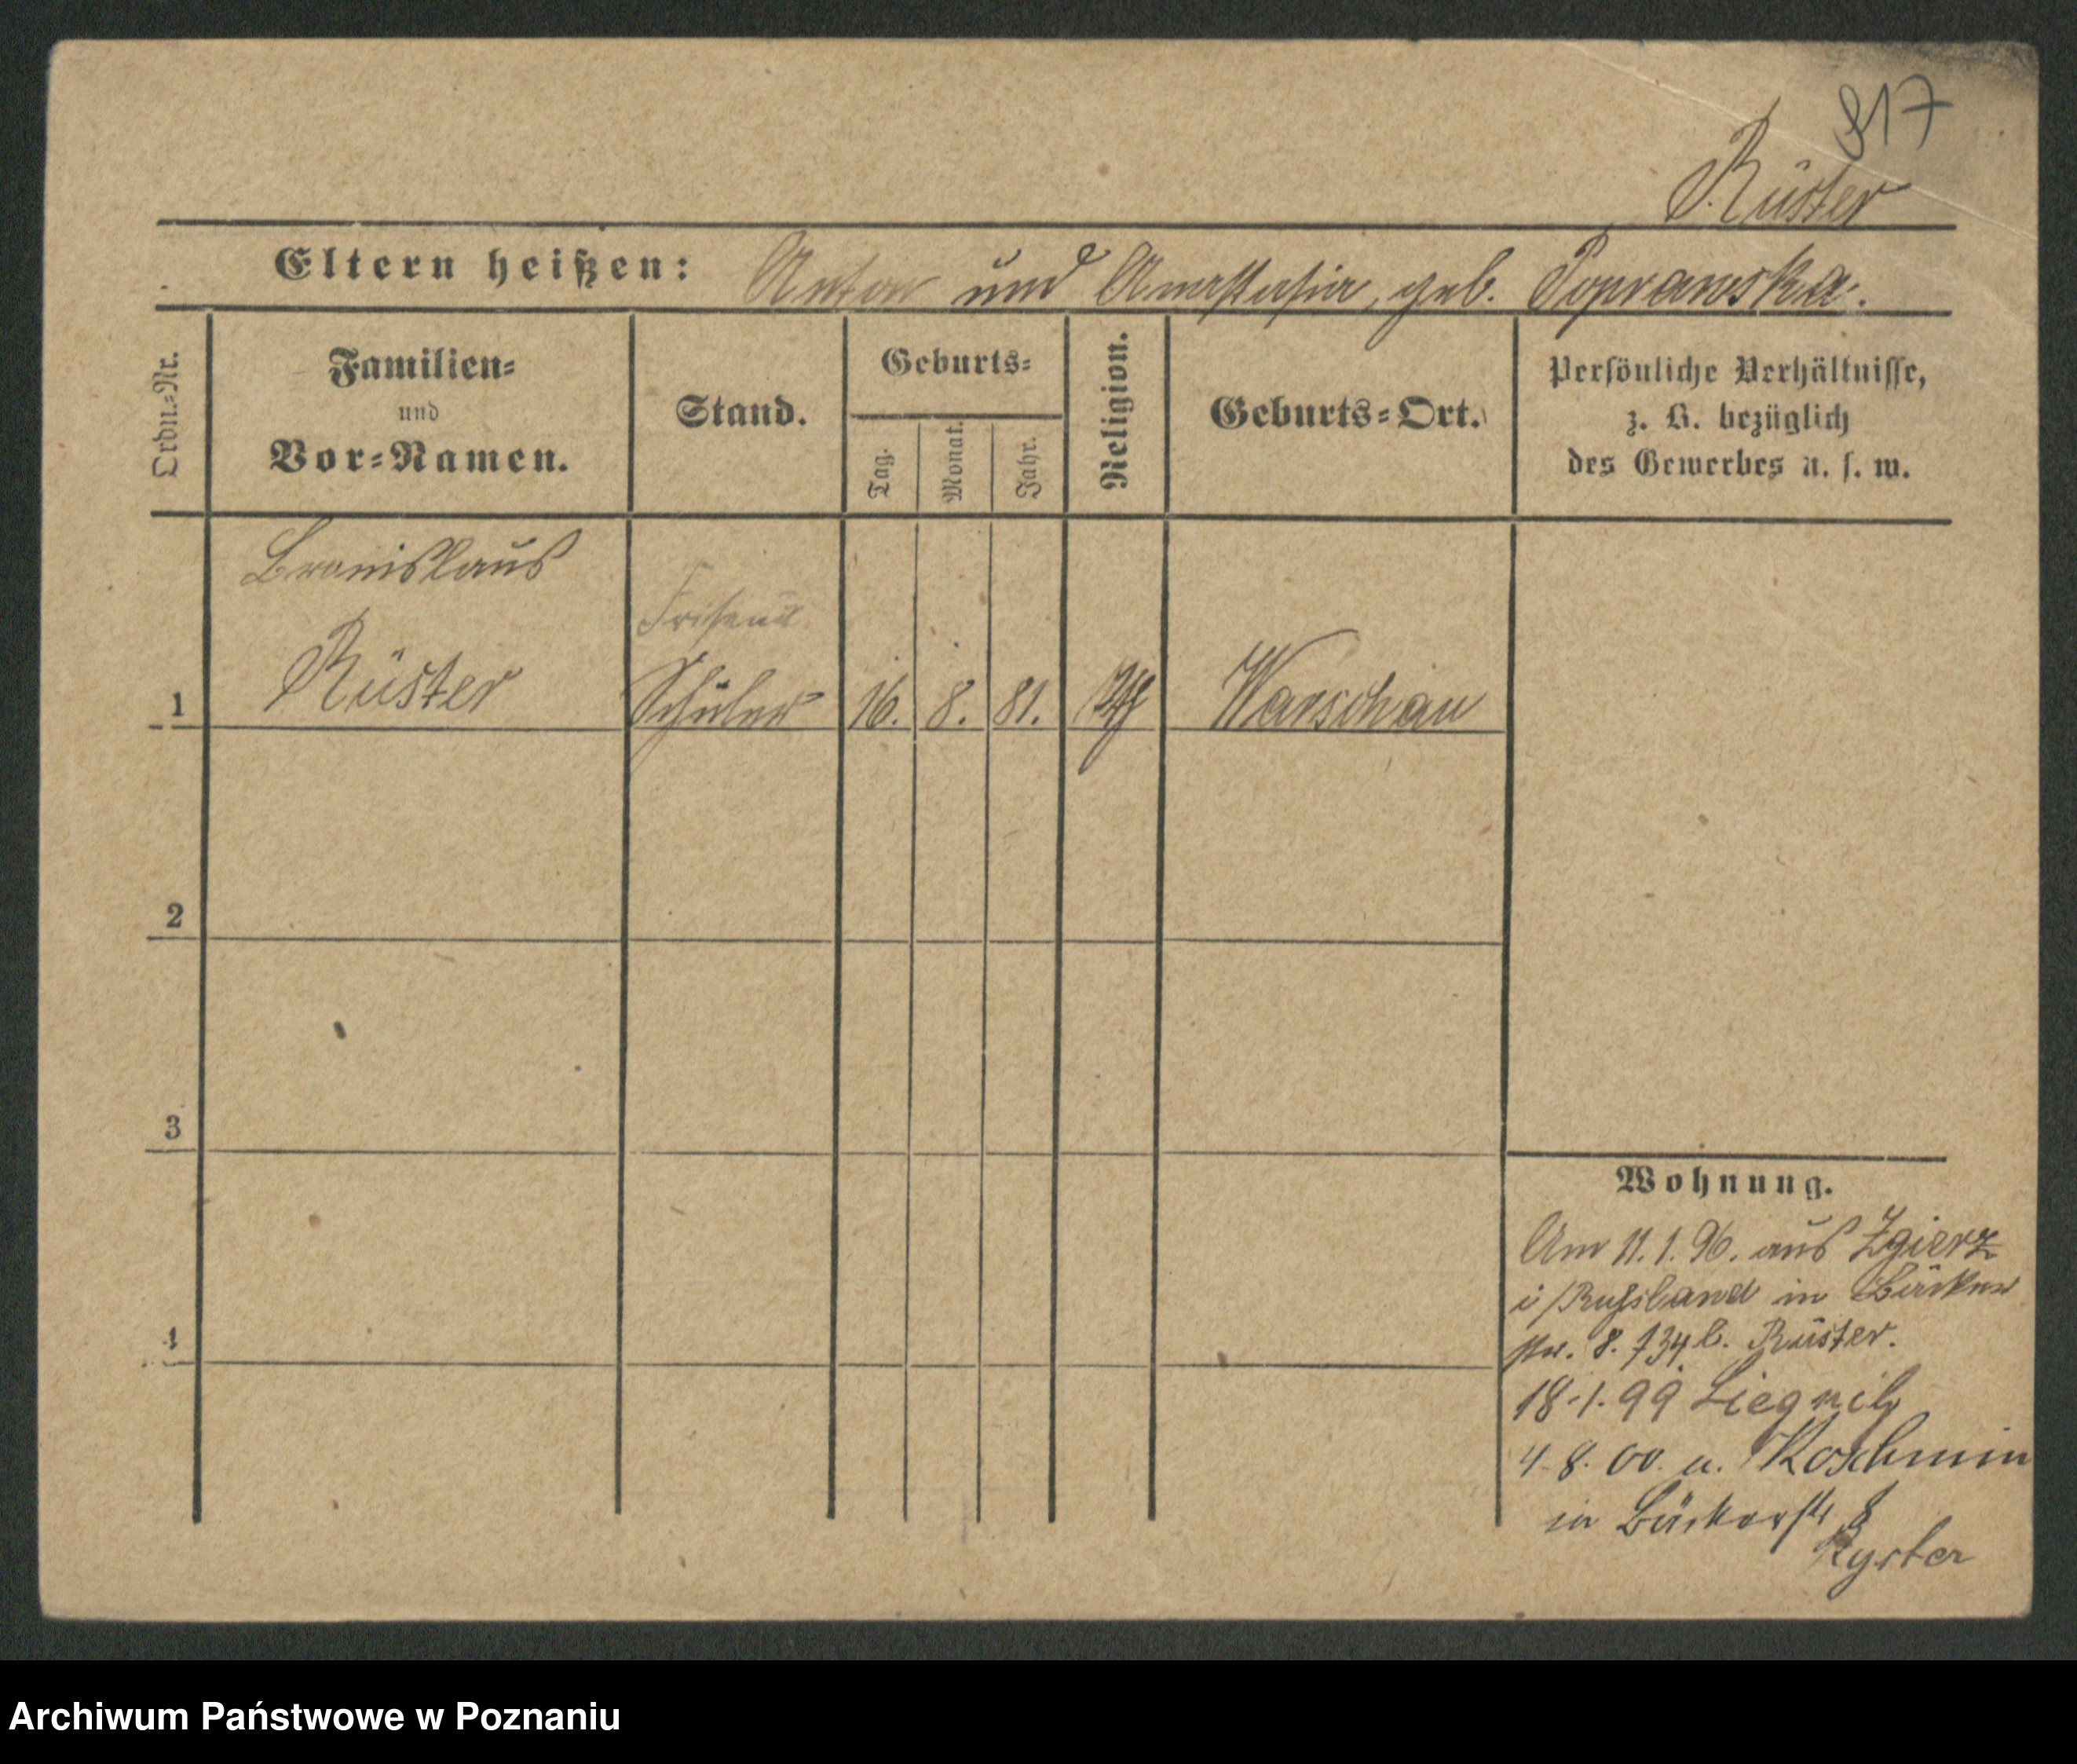 817
Rüster
Eltern heißen: Anton und Anastasia, geb. Poprawska.
Ordn.=Nr.
Familien=
und
Vor=Namen.
Stand.
Geburts=
Tag.
Monat.
Jahr.
Religion.
Geburts=Ort.
Persönliche Verhältnisse,
z. B. bezüglich
des Gewerbes u. s. w.
Bronislaus
Friseur
1 Rüster Schüler 16. 8. 81. Warschau
2
3
4
Wohnung.
Am 11.1.96. aus Zgierz
i/Russland in Bäcker
str. 8. b. Rüster.
18.1.99 Liegnitz
4.8.00. u. Koschmin
in Bäckerstr 8
Ryster
Archiwum Państwowe w Poznaniu